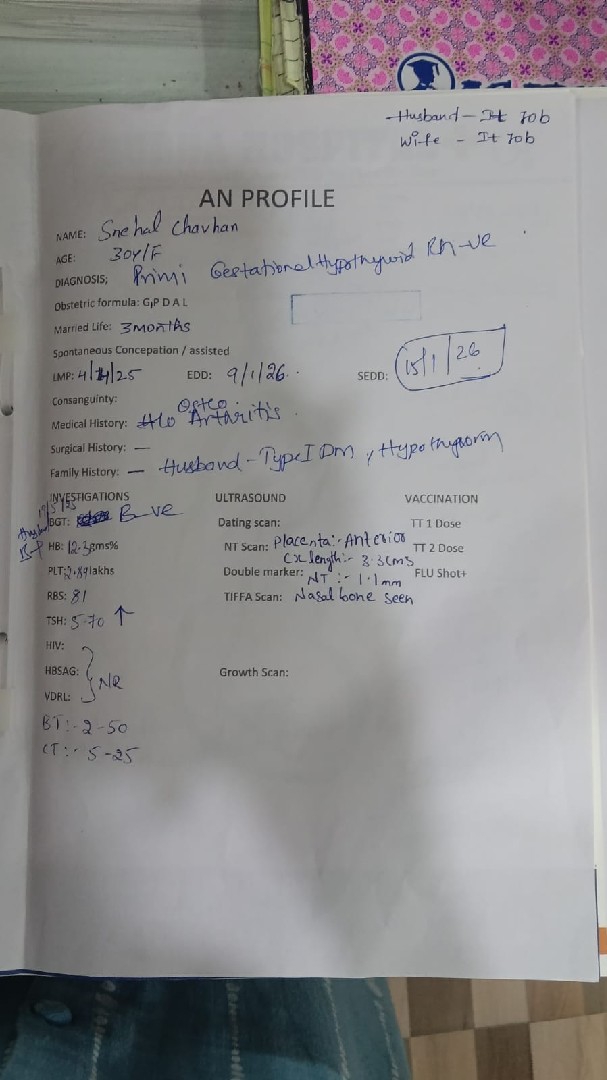 Husband - It Job
Wife - It Job
AN PROFILE
NAME: Snehal Chavhan
AGE: 30y/F
DIAGNOSIS; Primi Gestational Hypothyroid Rh-ve
Obstetric formula: G,P D A L
Married Life: 3 months
Spontaneous Concepation / assisted
LMP: 4/4/25 EDD: 9/1/26. SEDD: 15/1/26
Consanguinty:
Medical History: H/o Osteo Arthritis.
Surgical History: —
Family History: — Husband - Type I Dm, Hypothyroism
INVESTIGATIONS ULTRASOUND VACCINATION
BGT: B-ve Dating scan: TT 1 Dose
HB: 12.3gms% NT Scan: Placenta:- Anterior TT 2 Dose
Cx length:- 3.3cms
PLT: 2.87lakhs Double marker: NT:- 1.1mm FLU Shot+
RBS: 81 TIFFA Scan: Nasal bone seen
TSH: 5.70 ↑
HIV:
HBSAG: NR Growth Scan:
VDRL:
BT:- 2-50
CT:- 5-25